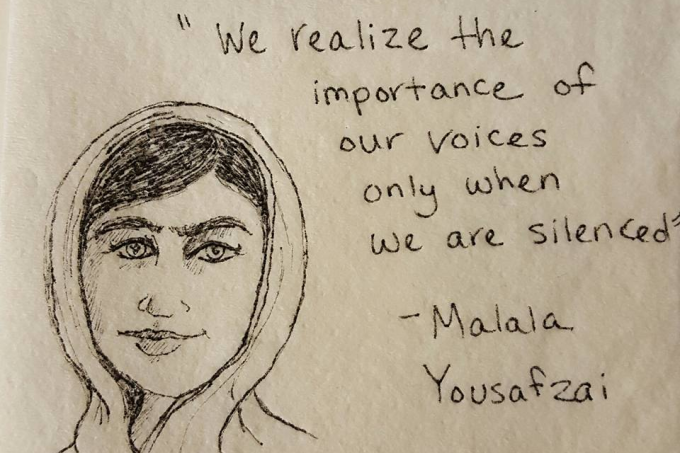 " We realize the
importance of
our voices
only when
we are silenced"
- Malala
Yousafzai